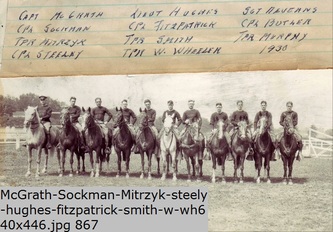 Capt McGrath Lieut Hughes Sgt Ravenns
Cpl Sockman Cpl Fitzpatrick Cpl Butler
Tpr Mitrzyk Tpr Smith Tpr Murphy
Cpl Steeley Tpr W. Wheeler 1930
McGrath-Sockman-Mitrzyk-steely
-hughes-fitzpatrick-smith-w-wh6
40x446.jpg 867